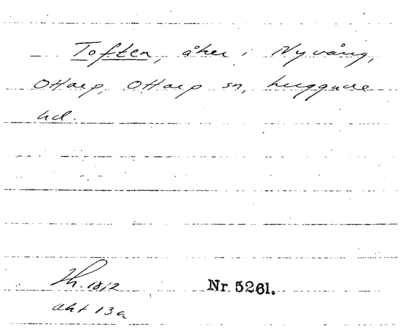 Toften, åker i Nyvång,
Ottarp, Ottarp sn, Luggude
hd.
Lh. 1812
akt 13a
Nr. 5261.